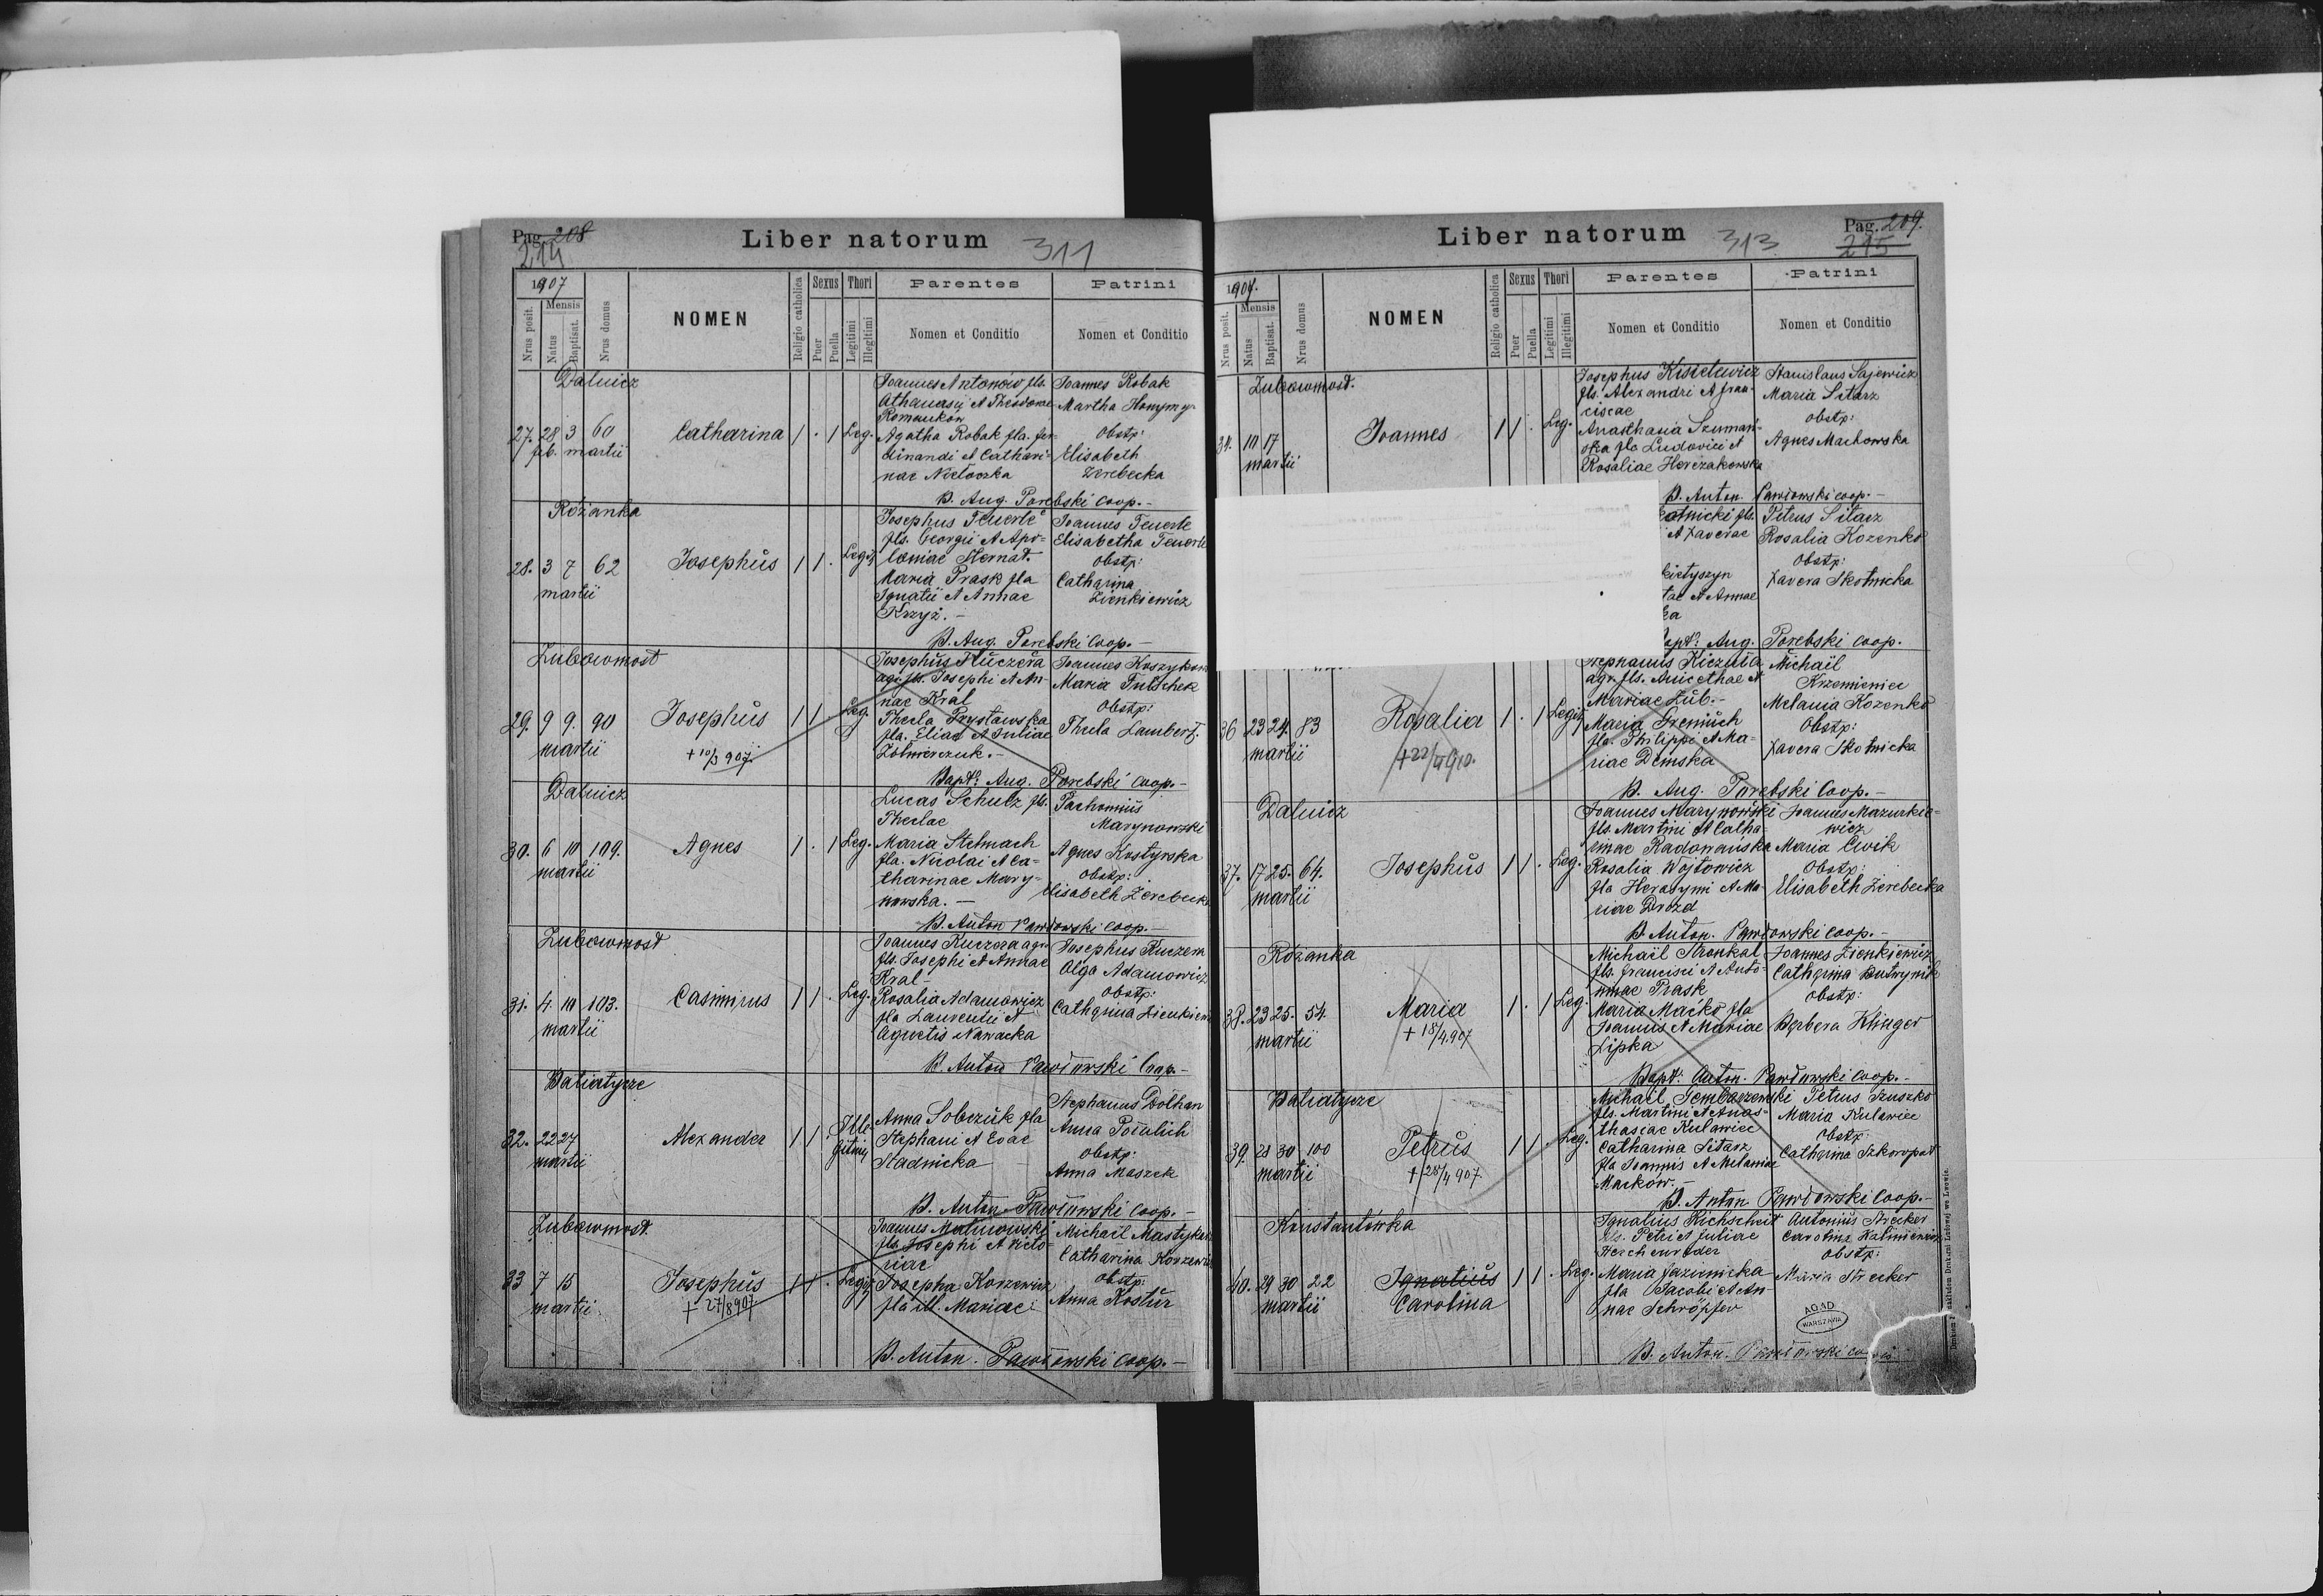 Pag. 208
214
Liber natorum
311
1907
Nrus posit.
Mensis
Natus
Baptisat.
Nrus domus
NOMEN
Religio catholica
Sexus
Puer
Puella
Thori
Legitimi
Illegitimi
Parentes
Nomen et Conditio
Patrini
Nomen et Conditio
Dalnicz
27. 28 3 60
feb. martii
Catharina 1 . 1 Leg.
Joannes Antonów fls.
Athanasii et Theodorae
Romankow
Agatha Robak fla. fer-
dinandi et Cathari-
nae
Joannes Robak
Martha
Obstp:
Elisabeth
Zerebecka
B. Aug. Porebski Coop.-
Różanka
28. 3 7 62
martii
Josephus 1 1 . Legit.
Josephus Feuerle
fls. Georgii et Apo-
loniae Hernat.
Maria Prask fla
Ignatii et Annae
Krzyż.-
Joannes Feuerle
Elisabetha Feuerle
Obstp:
Catharina
Zienkiewicz
B. Aug. Porebski Coop.-
Zubowmost
29. 9 9. 90
martii
Josephus 1 1 Leg.
+ 10/3 907.
Josephus Kuczera
agr. fls. Josephi et An-
nae Kral
Thecla Prystawska
fla. Eliae et Juliae
Joannes Koszykow
Maria
Obstp:
Thecla Lambert.
Bapt: Aug. Porebski Coop.-
Dalnicz
30. 6 10 109.
martii
Agnes 1 . 1 Leg.
Lucas Schulz fls.
Theclae
Maria Stelmach
fla. Nicolai et Ca-
tharinae Mary-
nowska.-
Pachomius
Marynowski
Agnes Kostyrska
Obstp:
Elisabeth Zerebecka
B. Anton Pawłowski Coop.-
Zubowmost
31. 4. 10 103.
martii
Casimirus 1 1 . Leg.
Joannes Kuczera agr.
fls. Josephi et Annae
Kral-
Rosalia Adamowicz
fla Laurentii et
Agnetis Nawacka
Josephus Kuczera
Olga Adamowicz
Obstp:
Catharina
B. Anton Pawłowski Coop.-
Batiatycze
32. 22 24
martii
Alexander 1 1 Ille-
gitimi
Anna Sobczuk fla
Stephani et Evae
Stadnicka
Stephanus Dolhan
Anna
Obstp:
Anna Maszek
B. Anton Pawłowski Coop.-
Zubowmost
33 7 15
martii
Josephus 1 1 . Legit.
+ 27/8 907
Joannes Malinowski
fls. Josephi et Victo-
riae
Josepha Korzewicz
fla ill. Mariae
Michaïl
Catharina
Obstp:
Anna Kostur
B. Anton. Pawłowski Coop.-
Liber natorum
313
Pag. 209.
215
1907.
Nrus posit.
Mensis
Natus
Baptisat.
Nrus domus
NOMEN
Religio catholica
Sexus
Puer
Puella
Thori
Legitimi
Illegitimi
Parentes
Nomen et Conditio
Patrini
Nomen et Conditio
Zubowmost.
34. 10 17
martii
Joannes 1 1 . Leg.
Josephus Kisielewicz
fls. Alexandri et fran-
ciscae
Anasthasia Szumań-
ska fla Ludovici et
Rosaliae Horczakowska
Stanislaus Sajewicz
Maria Sitarz
Obstp:
Agnes Machowska
B. Anton. Pawłowski Coop.-
otnicki fls.
et Xaverae
kietyszyn
tae et Annae
ka
Petrus Sitarz
Rosalia Kozenko
Obstp:
Xavera Skotnicka
Bapt: Aug. Porebski Coop.
36 23 24. 83
martii
Rosalia 1 . 1 Legit.
Stephanus Kiczuła
agr. fls. Anicethae et
Mariae Zub.-
Maria
fla. Philippi et Ma-
riae Demska
Michaïl
Krzemieniec
Melania Kozenko
Obstp:
Xavera Skotnicka
B. Aug. Porebski Coop.-
Dalnicz
37. 17 25. 64.
martii
Josephus 1 1 . Leg.
Joannes Marynowski
fls. Martini et Catha-
rinae Radowańska
Rosalia Wojtowicz
fla Hieronymi et Ma-
riae Drozd
Joannes Mazurkie-
wicz
Maria Cwik
Obstp:
Elisabeth Zerebecka
B. Anton. Pawłowski Coop.-
Różanka
38. 23 25. 54.
martii
Maria 1 . 1 Leg.
+ 18/4.907
Michaïl Stronkal
fls. francisci et Anto-
ninae Prask
Maria Maćko fla
Joannis et Mariae
Lipka
Joannes Zienkiewicz
Catharina
Obstp:
Barbara Klinger
Bapt: Anton. Pawłowski Coop.-
Batiatycze
39. 28 30 100
martii
Petrus 1 1 . Leg.
+ 28/4 907
Michaïl
fls. Martini et Anas-
thasiae Kulawiec
Catharina Sitarz
fla Joannis et Melaniae
Markow.-
Petrus Gruszko
Maria Kulawiec
Obstp:
Catharina
B. Anton. Pawłowski Coop.-
Konstantówka
40. 29 30 22
martii
Ignatius 1 1 . Leg.
Carolina
Ignatius
fls. Petri et Juliae
Maria
fla Jacobi et An-
nae Schröpfer
Antonius Strecker
Carolina
Obstp:
Maria Strecker
AGAD
WARSZAWA
B. Anton. Pawłowski